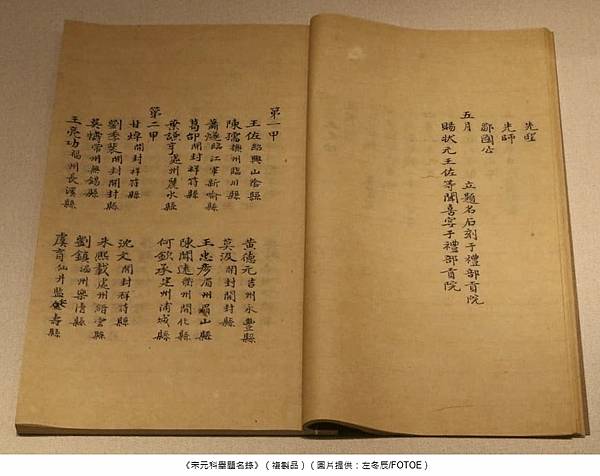 先聖
先師
鄒國公
五月 立題名石刻于禮部貢院
賜狀元王佐等聞喜宴于禮部貢院
第一甲
王佐紹興山陰縣 黃德元吉州永豐縣
陳孺撫州臨川縣 莫汲開封開封縣
蕭燧臨江軍新喻縣 王忠彥眉州眉山縣
葛邲開封祥符縣 陳聞遠衢州開化縣
葉謙亨處州麗水縣 何欽承建州浦城縣
第二甲
甘焯開封祥符縣 沈文開封祥符縣
劉季裴開封開封縣 朱熙載處州縉雲縣
吳燽常州無錫縣 劉鎮州樂清縣
王亮功福州長溪縣 虞育仙井監壽縣
《宋元科舉題名錄》（複製品）（圖片提供：左冬辰/FOTOE）